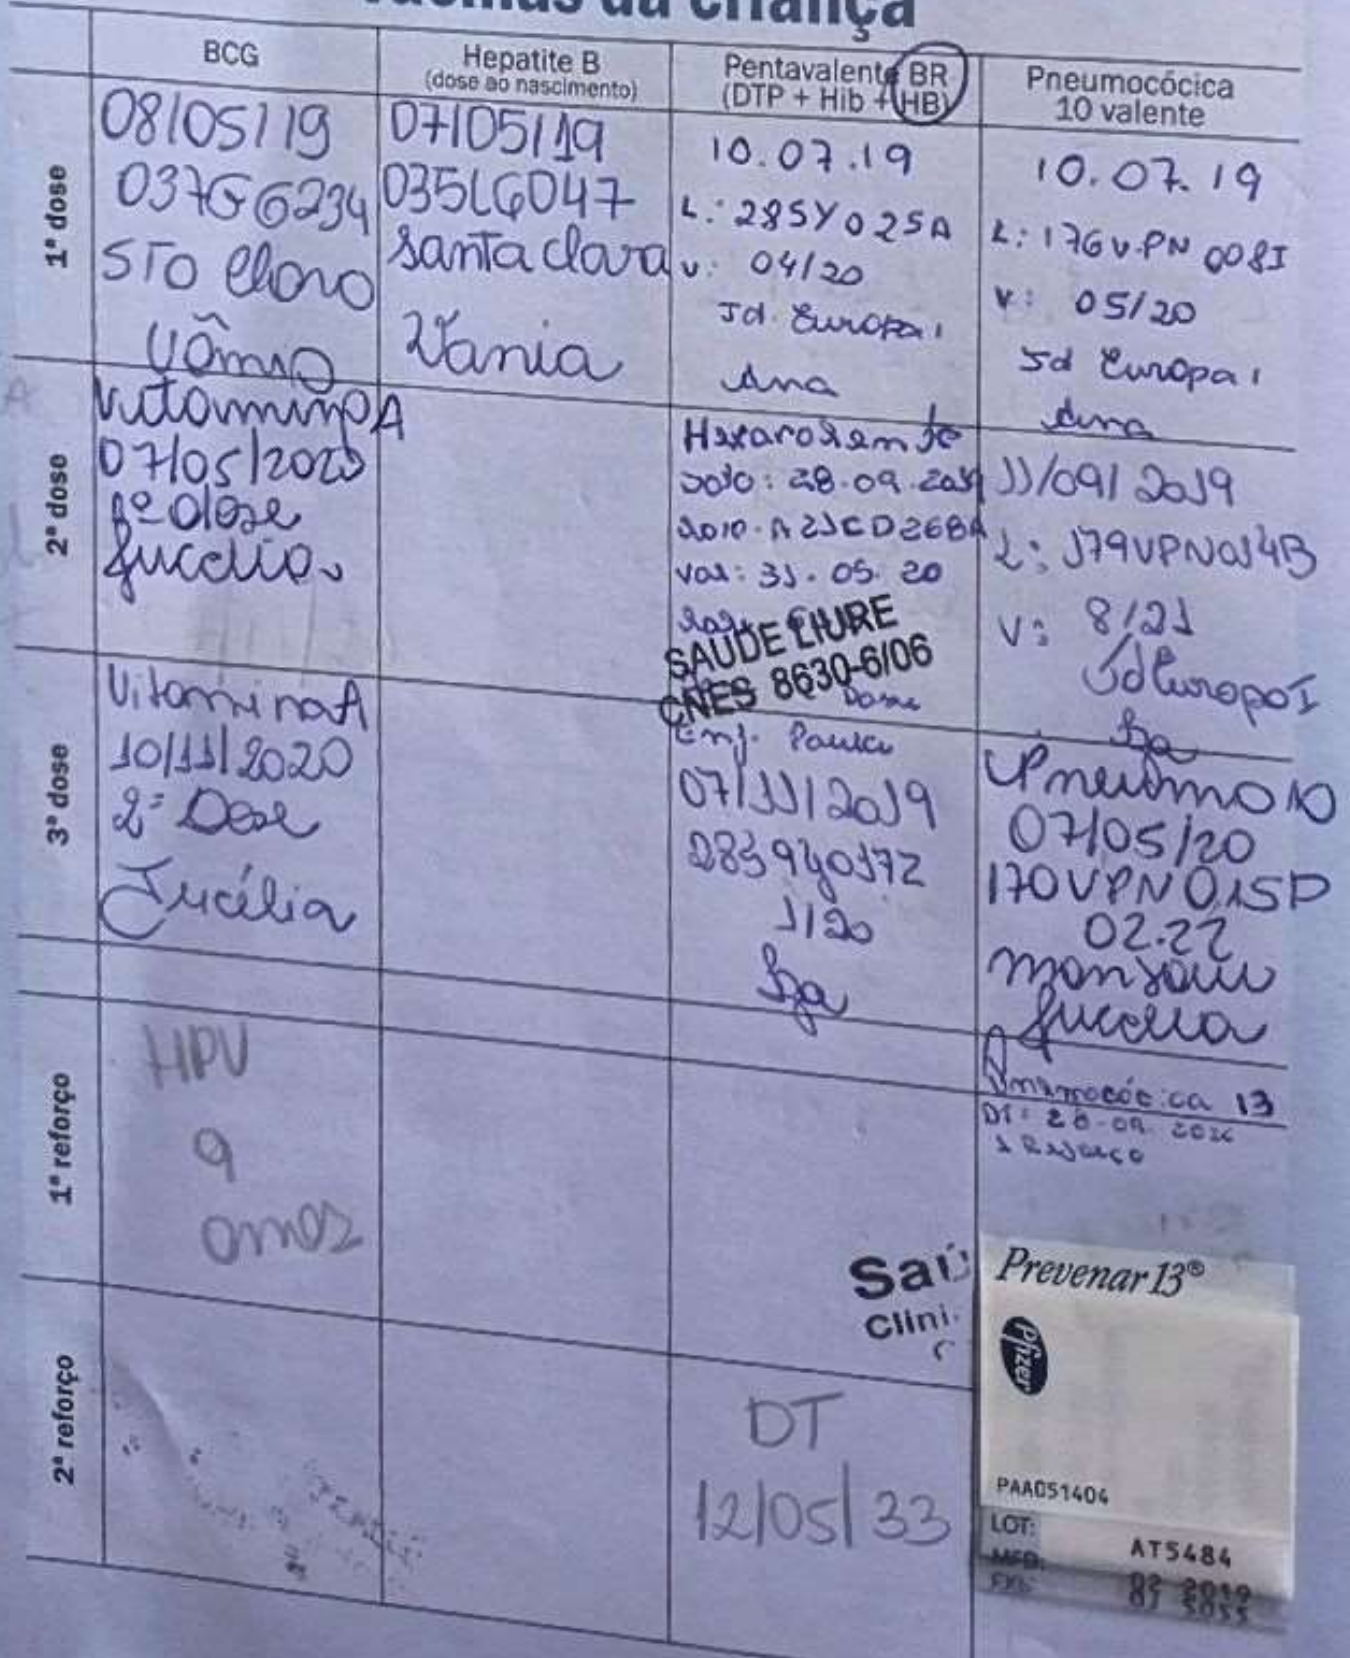 da criança
BCG
Hepatite B
(dose ao nascimento)
Pentavalente BR
(DTP + Hib + HB)
Pneumocócica
10 valente
1ª dose
08/05/19
037G6234
STO
Vitamina A
07/05/19
035LG047
Santa Clara
Vania
10.07.19
L.: 285Y025A
v: 04/20
Jd. Europa I
Ana
10.07.19
L: 176VPN008I
V: 05/20
Jd Europa I
Ana
2ª dose
07/05/2020
1ª dose
Jucelia
28.09.2019
A21CD268A
Val: 31.05.20
SAUDE LIURE
CNES 8630-6/06
Dose
Enf. Paula
11/09/2019
L: 179VPN014B
V: 8/21
Jd Europa I
Iza
3ª dose
Vitamina A
10/11/2020
2ª Dose
Jucélia
07/11/2019
2839Y0172
1/20
Iza
Pneumo 10
07/05/20
170VPN015P
02.22
Jucelia
1º reforço
HPV
9
anos
Saú
Clini
Pneumocócica 13
1 Reforço
Prevenar 13®
Pfizer
PAA051404
LOT: AT5484
MFD:
2º reforço
DT
12/05/33